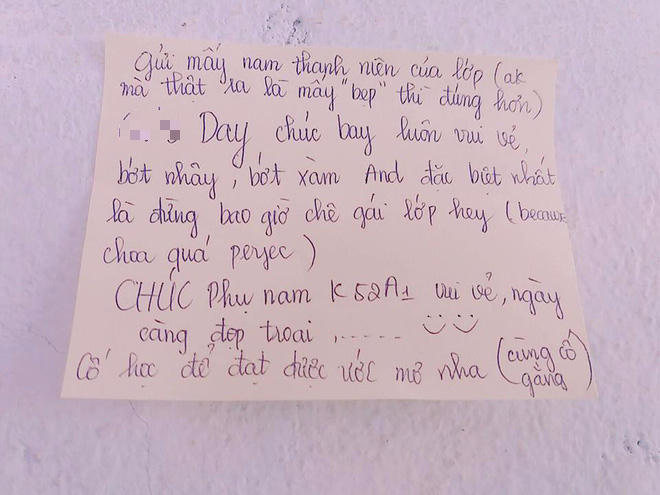 Gửi mấy nam thanh niên của lớp (ak
mà thật ra là mấy "bẹp" thì đúng hơn)
Day chúc bay luôn vui vẻ,
bớt nhây, bớt xàm And đặc biệt nhất
là đừng bao giờ chê gái lớp hey (because
choa quá perfec)
CHÚC Phụ nam K52A1 vui vẻ, ngày
càng đẹp troai ,.....
Cố học để đạt được ước mơ nha (cùng cố
gắng)